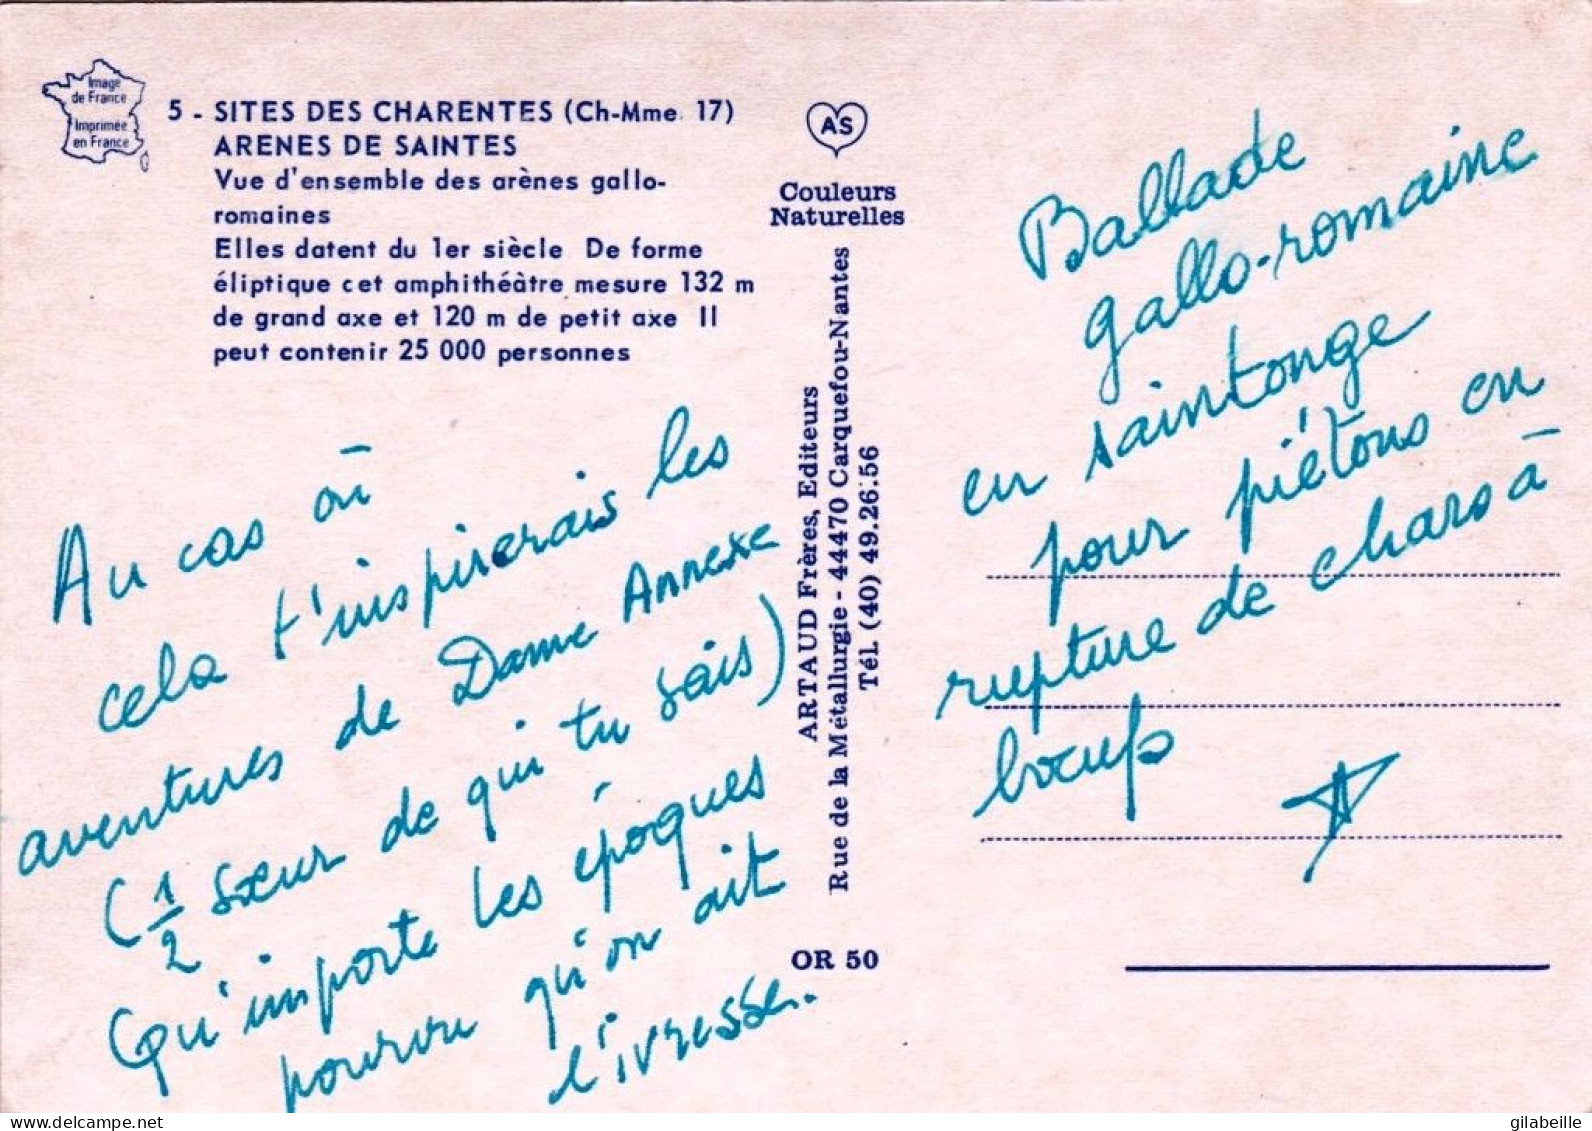 Image
de France
Imprimée
en France
5 - SITES DES CHARENTES (Ch-Mme 17)
ARENES DE SAINTES
Vue d'ensemble des arènes gallo-
romaines
Elles datent du 1er siècle De forme
éliptique cet amphithéàtre mesure 132 m
de grand axe et 120 m de petit axe Il
peut contenir 25 000 personnes
AS
Couleurs
Naturelles
ARTAUD Frères, Editeurs
Rue de la Métallurgie - 44470 Carquefou-Nantes
Tél. (40) 49.26.56
OR 50
Au cas où
cela t'inspirerais les
aventures de Dame Annexe
(1/2 sœur de qui tu sais)
Qu'importe les époques
pourvu qu'on ait
l'ivresse.
Ballade
gallo-romaine
en saintonge
pour piétons en
rupture de chars à
bœufs
www.delcampe.net
gilabeille